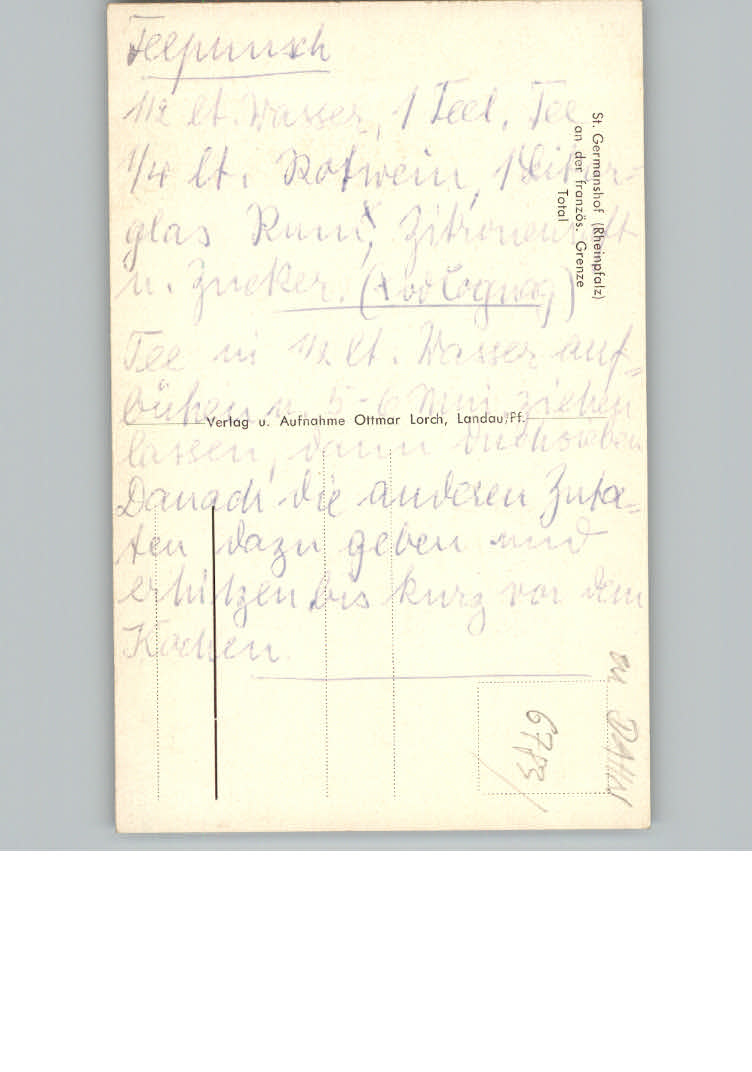 Teepunsch
1/2 lt. Wasser, 1 Teel. Tee
1/4 lt. Rotwein, 1 Likör-
glas Rum, Zitronensaft
u. Zucker. (x od Cognag)
Tee in 1/2 lt. Wasser auf-
brühen u. 5-6 Min ziehen
lassen, dann durchsieben
Danach die anderen Zuta-
ten dazu geben und
erhitzen bis kurz vor dem
Kochen.
St. Germanshof (Rheinpfalz)
an der französ. Grenze
Total
Verlag u. Aufnahme Ottmar Lorch, Landau/Pf.
6783
DAHN